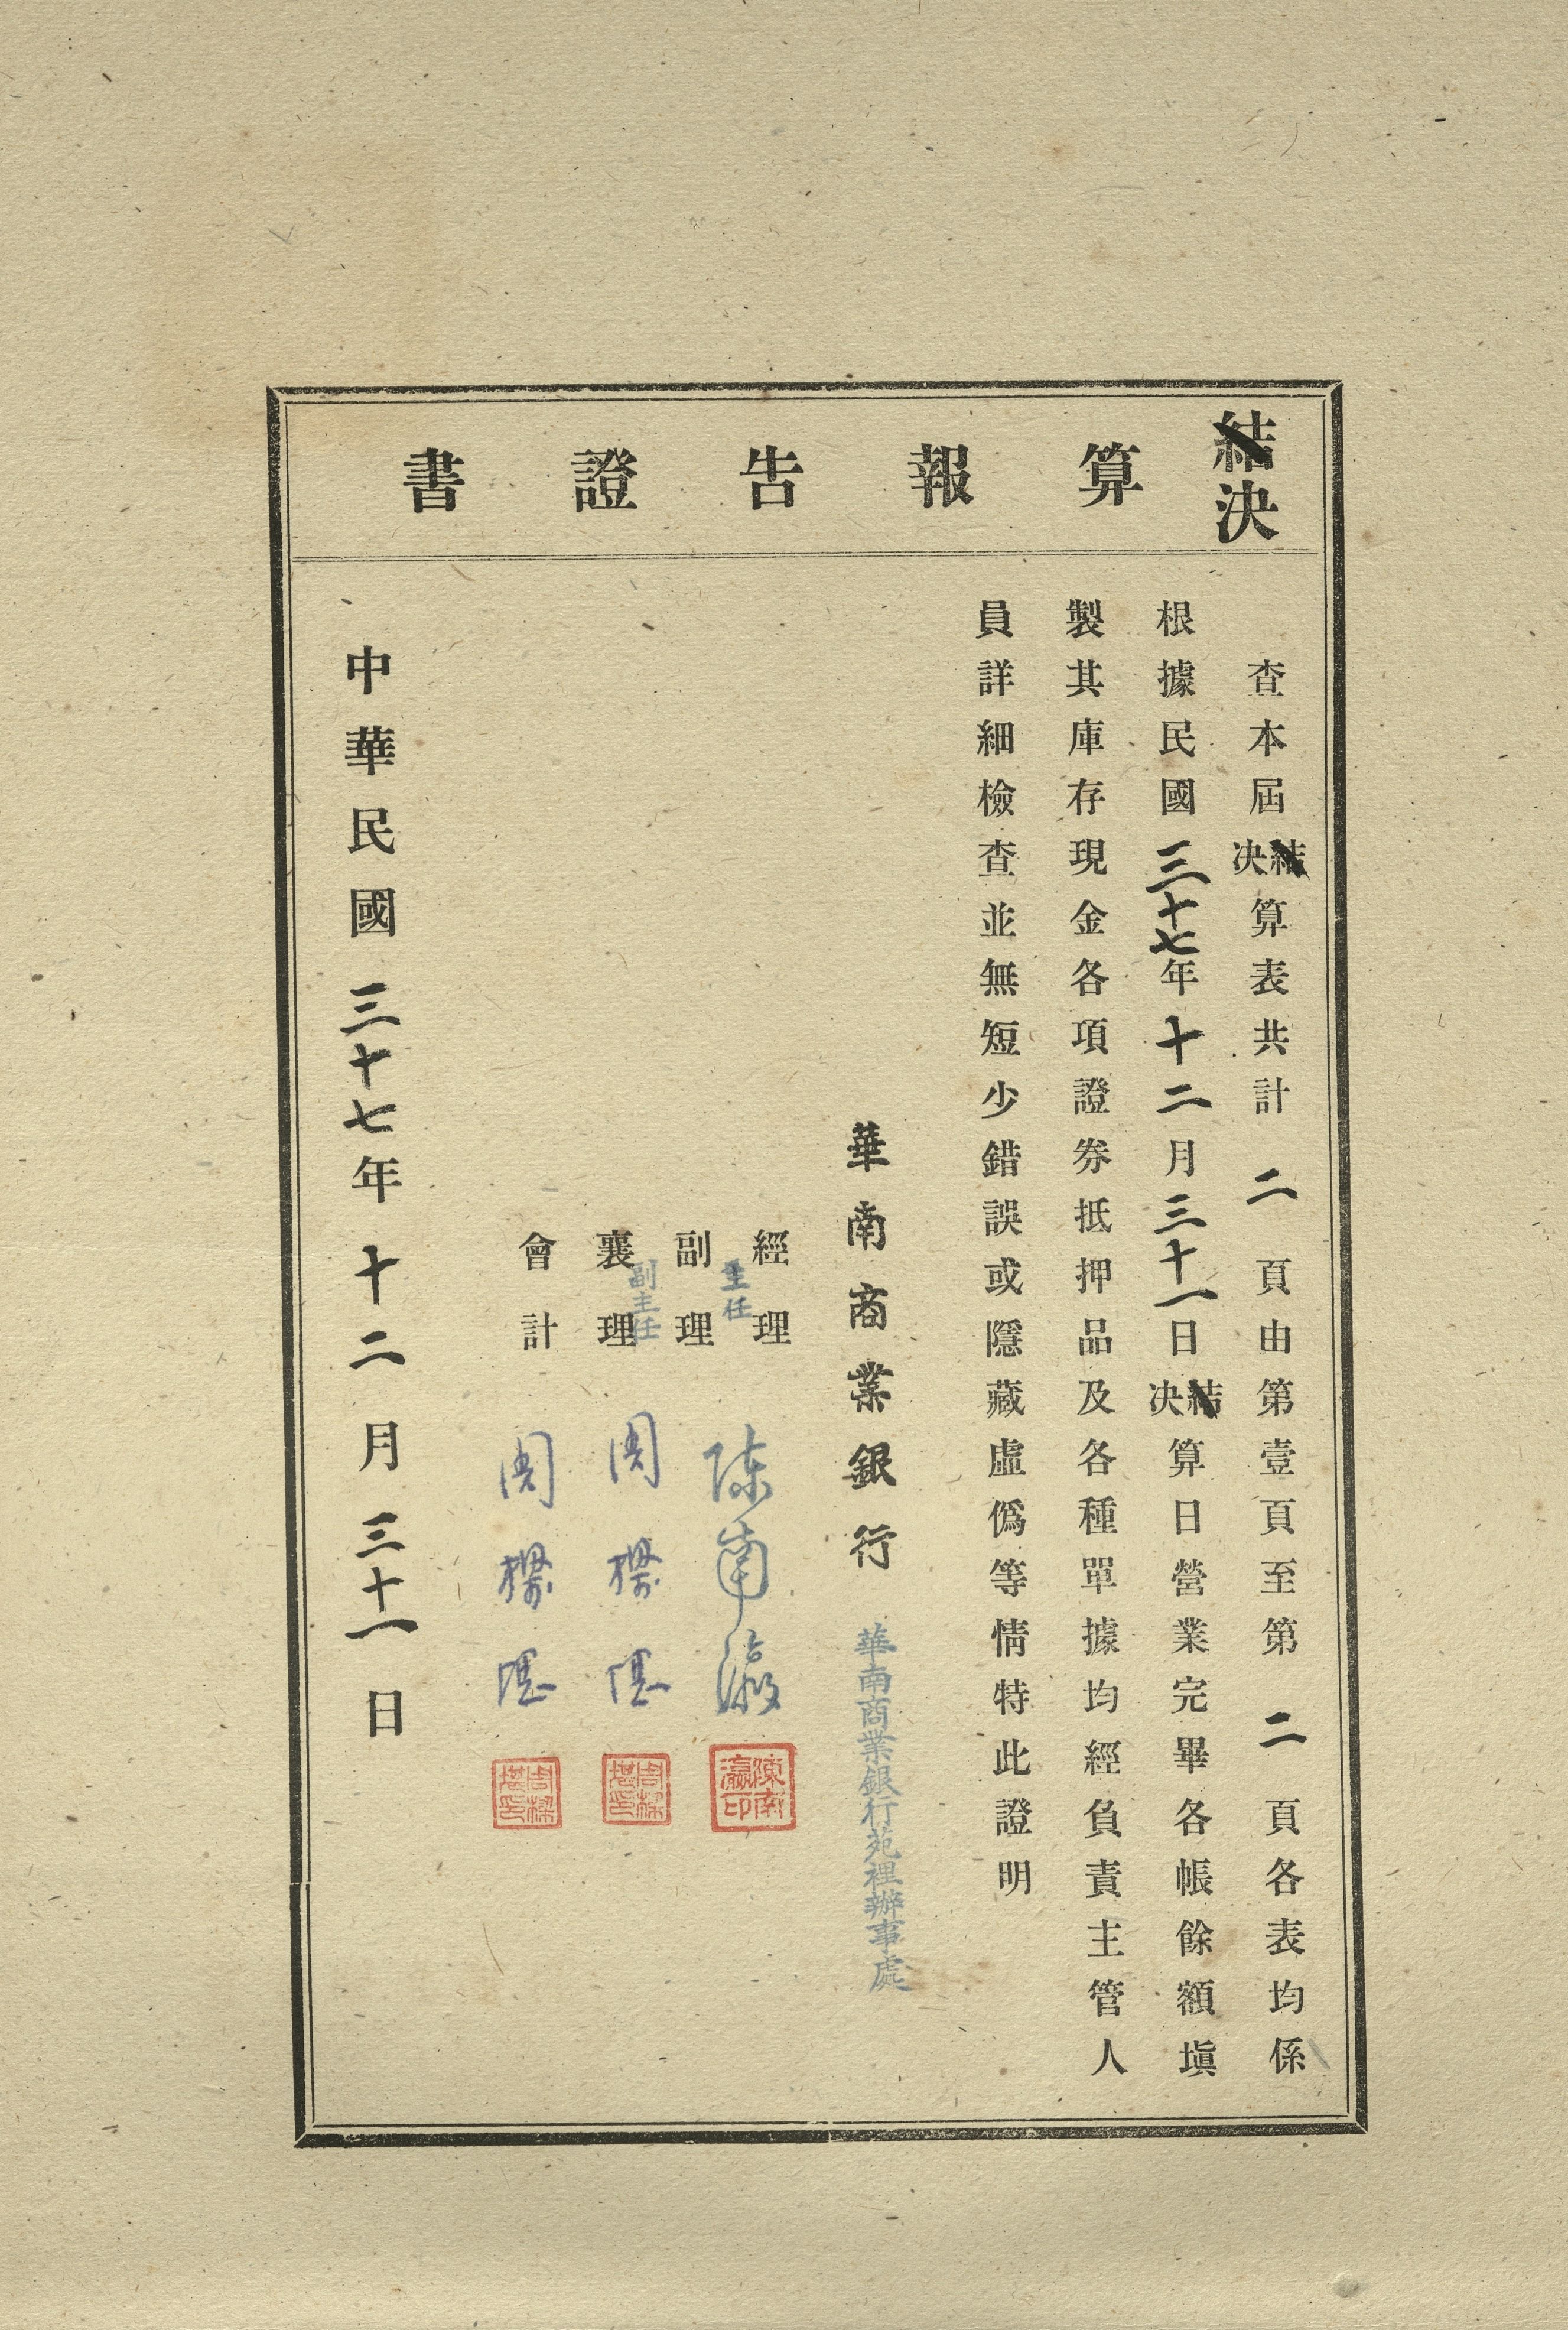 結決算報告證書
查本屆結決算表共計二頁由第壹頁至第二頁各表均係
根據民國三十七年十二月三十一日結決算日營業完畢各帳餘額塡
製其庫存現金各項證券抵押品及各種單據均經負責主管人
員詳細檢查並無短少錯誤或隱藏虛僞等情特此證明
華南商業銀行 華南商業銀行苑裡辦事處
經理
主任 陳南瀛 陳南瀛印
副理
副主任 周樑堪 周樑堪印
襄理
會計 周樑堪 周樑堪印
中華民國三十七年十二月三十一日